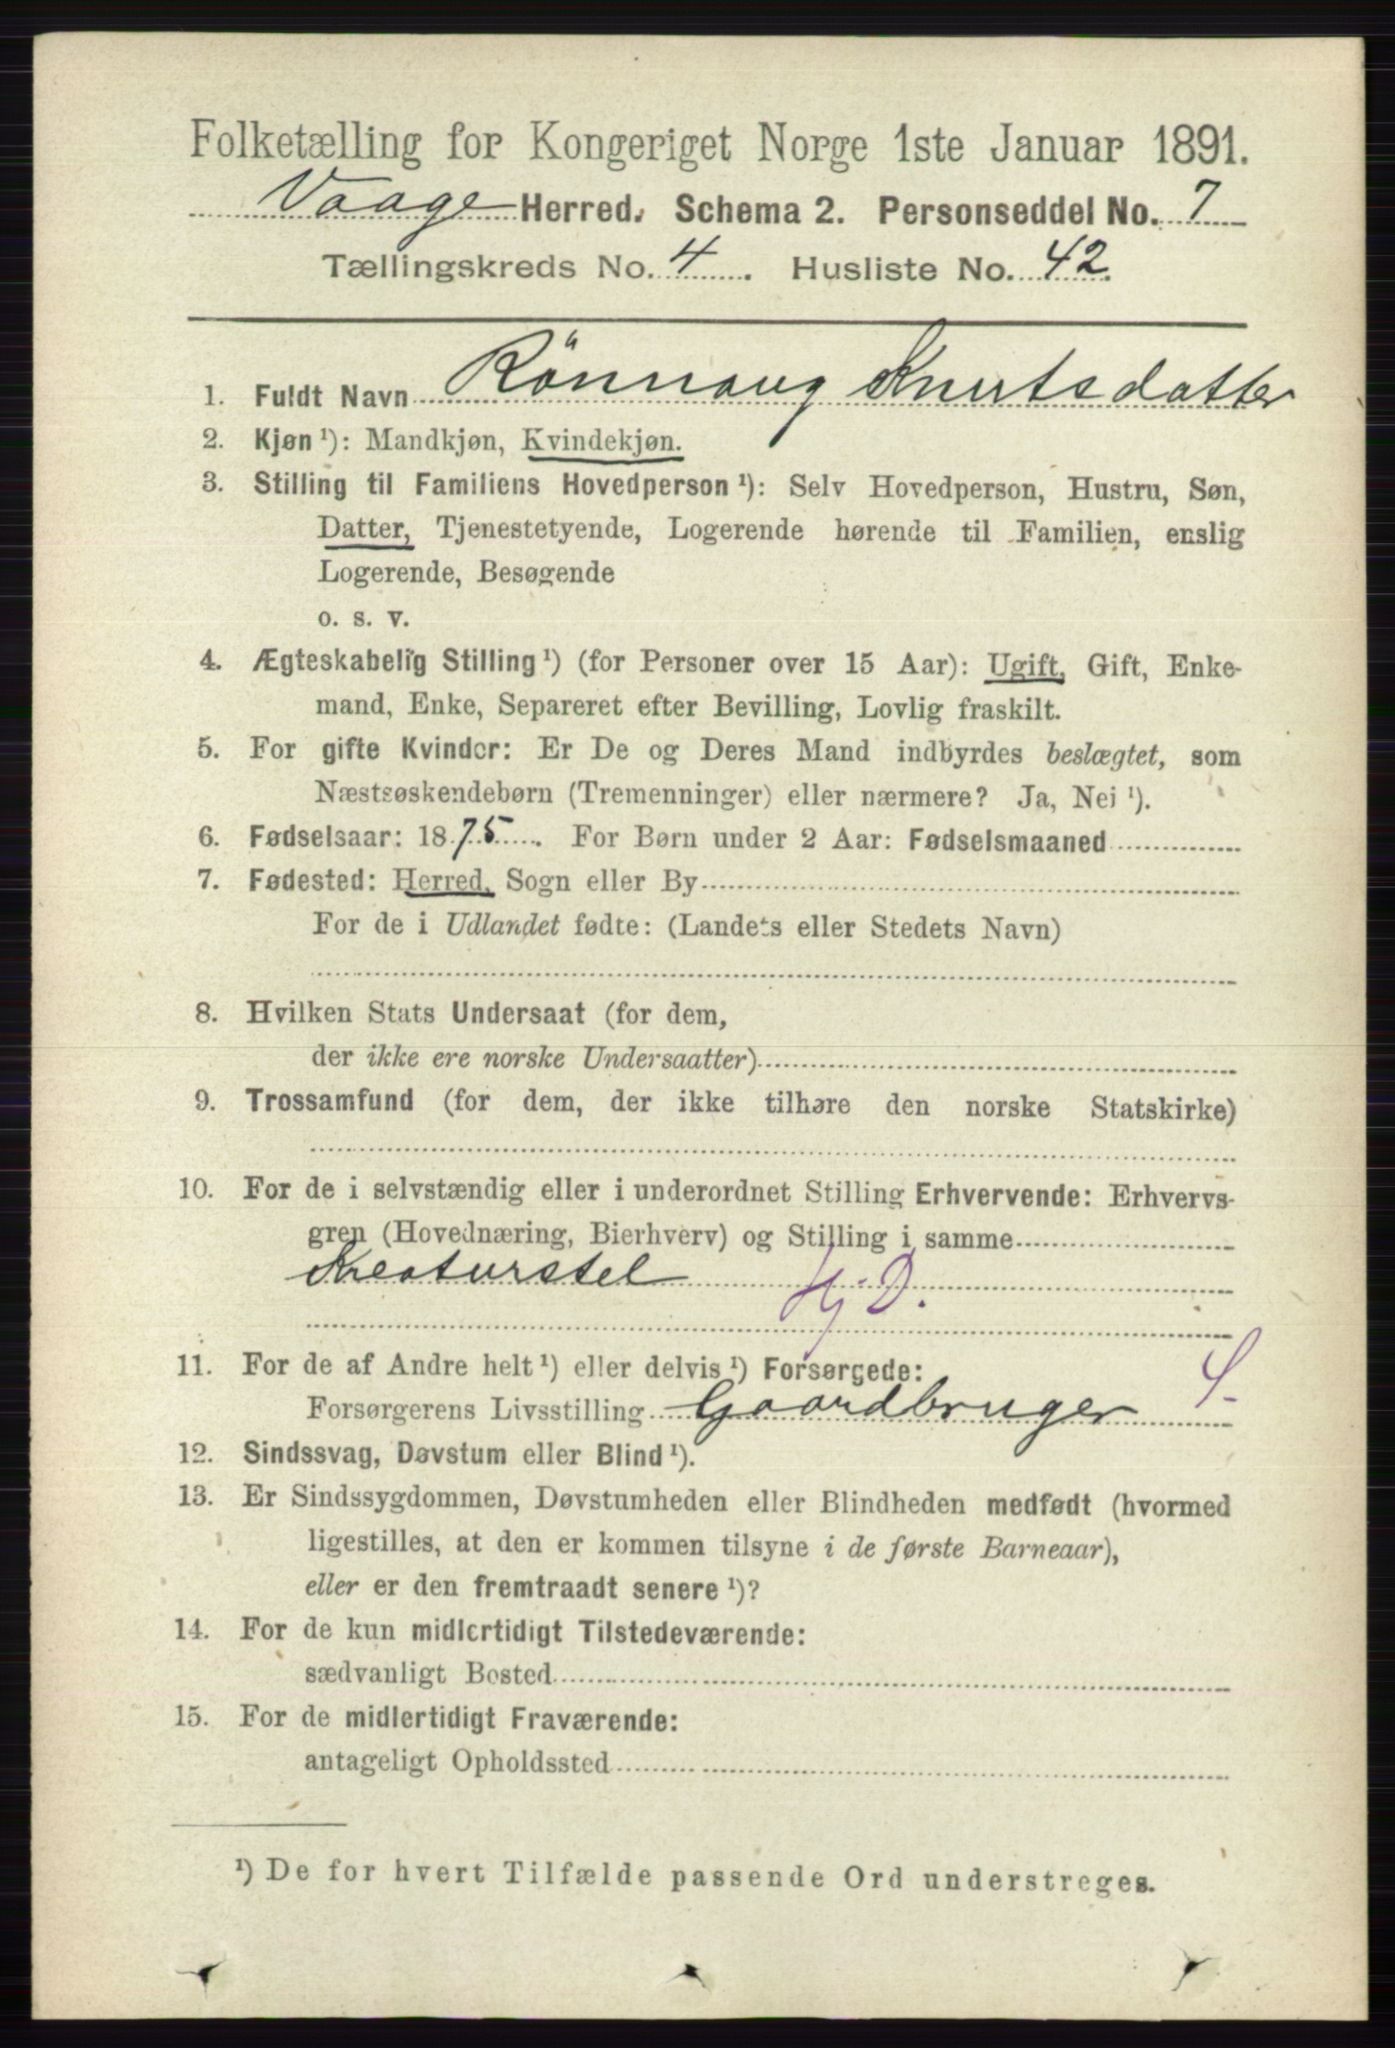 Folketælling for Kongeriget Norge 1ste Januar 1891.
Vaage Herred. Schema 2. Personseddel No. 7
Tællingskreds No. 4. Husliste No. 42.
1. Fuldt Navn Rönnaug Knutsdatter
2. Kjøn ¹): Mandkjøn, Kvindekjøn.
3. Stilling til Familiens Hovedperson ¹): Selv Hovedperson, Hustru, Søn,
Datter, Tjenestetyende, Logerende hørende til Familien, enslig
Logerende, Besøgende
o. s. v.
4. Ægteskabelig Stilling ¹) (for Personer over 15 Aar): Ugift, Gift, Enke-
mand, Enke, Separeret efter Bevilling, Lovlig fraskilt.
5. For gifte Kvinder: Er De og Deres Mand indbyrdes beslægtet, som
Næstsøskendebørn (Tremenninger) eller nærmere? Ja, Nei ¹).
6. Fødselsaar: 1875. For Børn under 2 Aar: Fødselsmaaned
7. Fødested: Herred, Sogn eller By
For de i Udlandet fødte: (Landets eller Stedets Navn)
8. Hvilken Stats Undersaat (for dem,
der ikke ere norske Undersaatter)
9. Trossamfund (for dem, der ikke tilhøre den norske Statskirke)
10. For de i selvstændig eller i underordnet Stilling Erhvervende: Erhvervs-
gren (Hovednæring, Bierhverv) og Stilling i samme
Kreaturstel Hj. D.
11. For de af Andre helt ¹) eller delvis ¹) Forsørgede:
Forsørgerens Livsstilling Gaardbruger
12. Sindssvag, Døvstum eller Blind ¹).
13. Er Sindssygdommen, Døvstumheden eller Blindheden medfødt (hvormed
ligestilles, at den er kommen tilsyne i de første Barneaar),
eller er den fremtraadt senere ¹)?
14. For de kun midlertidigt Tilstedeværende:
sædvanligt Bosted
15. For de midlertidigt Fraværende:
antageligt Opholdssted
¹) De for hvert Tilfælde passende Ord understreges.